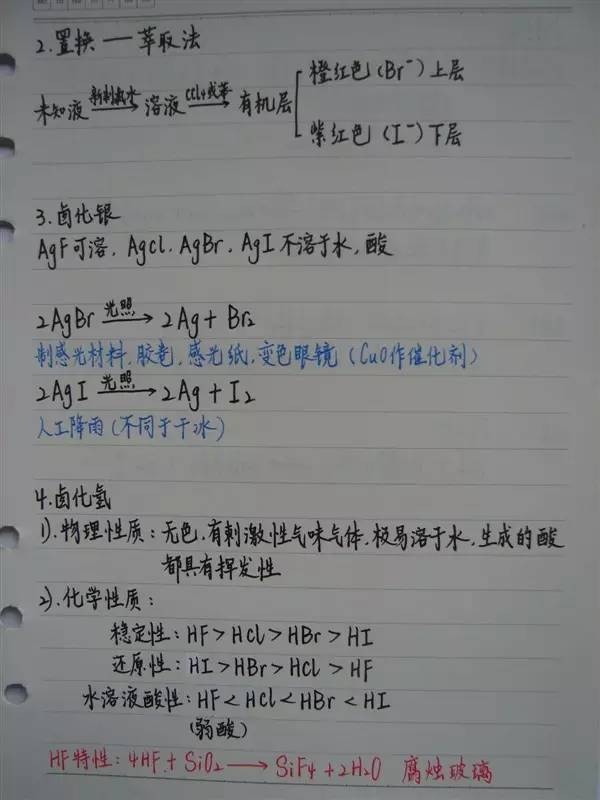 2.置换——萃取法
橙红色(Br⁻)上层
未知液 新制氯水→ 溶液 CCl4或苯→ 有机层
紫红色(I⁻)下层
3.卤化银
AgF可溶,AgCl.AgBr.AgI不溶于水,酸
2AgBr 光照→ 2Ag+Br₂
制感光材料,胶卷,感光纸,变色眼镜(CuO作催化剂)
2AgI 光照→ 2Ag+I₂
人工降雨(不同于干冰)
4.卤化氢
1).物理性质:无色,有刺激性气味气体,极易溶于水,生成的酸
都具有挥发性
2).化学性质:
稳定性:HF>HCl>HBr>HI
还原性:HI>HBr>HCl>HF
水溶液酸性:HF<HCl<HBr<HI
(弱酸)
HF特性:4HF+SiO₂→SiF₄+2H₂O 腐蚀玻璃